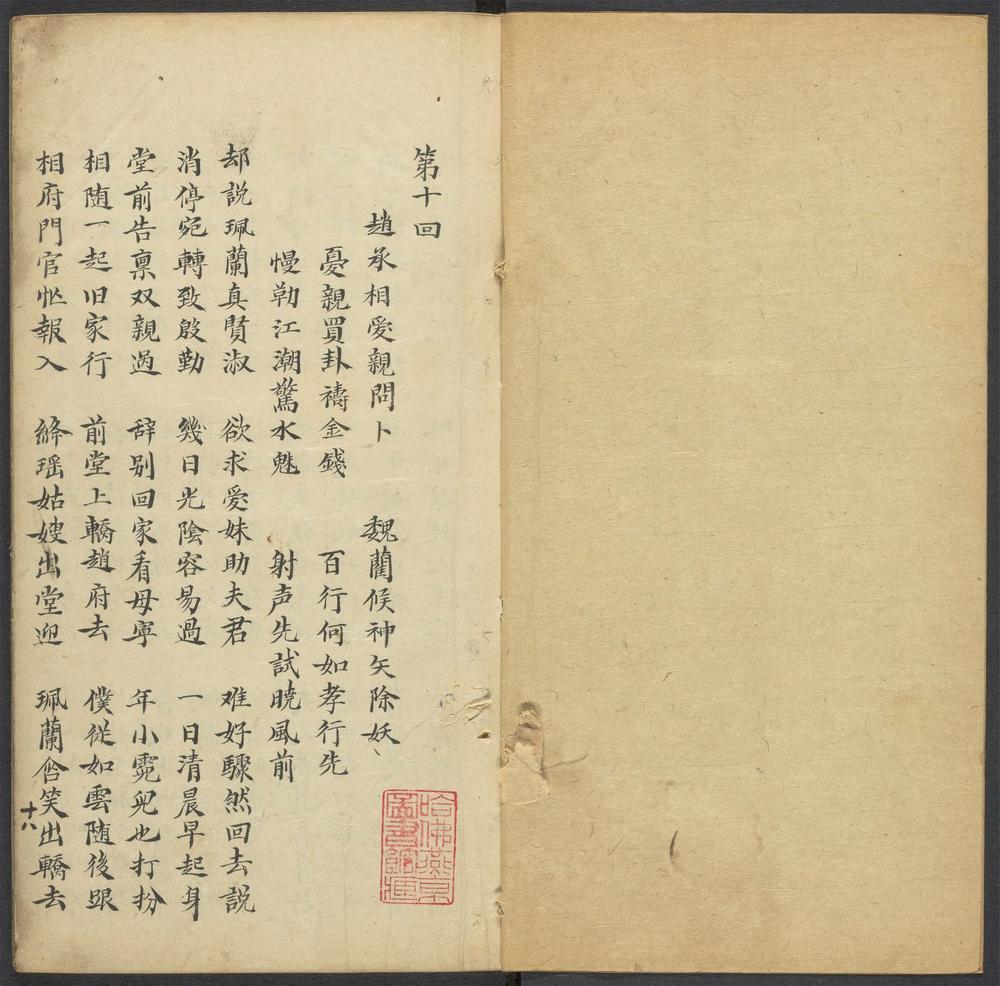 第十回
趙承相愛親問卜 魏藺候神矢除妖
憂親買卦禱金錢 百行何如孝行先
慢勒江潮驚水魅 射声先試曉風前
却説珮蘭真賢淑 欲求愛妹助夫君 难好驟然回去説
消停宛轉致殷勤 幾日光陰容易過 一日清晨早起身
堂前告禀双親過 辞别回家看母寜 年小霓兒也打扮
相随一起旧家行 前堂上轎趙府去 僕從如雲随後跟
相府門官忙報入 絳瑶姑嫂出堂迎 珮蘭含笑出轎去
十八
哈佛燕京圖書館藏